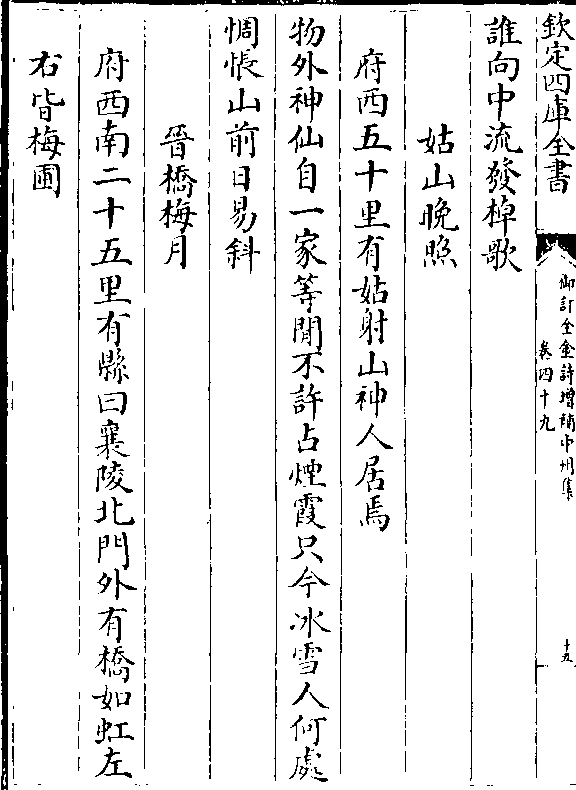 欽定四庫全書
御訂全金詩增補中州集
卷四十九
十五
誰向中流發棹歌
姑山晚照
府西五十里有姑射山神人居焉
物外神仙自一家等閒不許占煙霞只今冰雪人何處
惆悵山前日易斜
晉橋梅月
府西南二十五里有縣曰襄陵北門外有橋如虹左
右皆梅圃